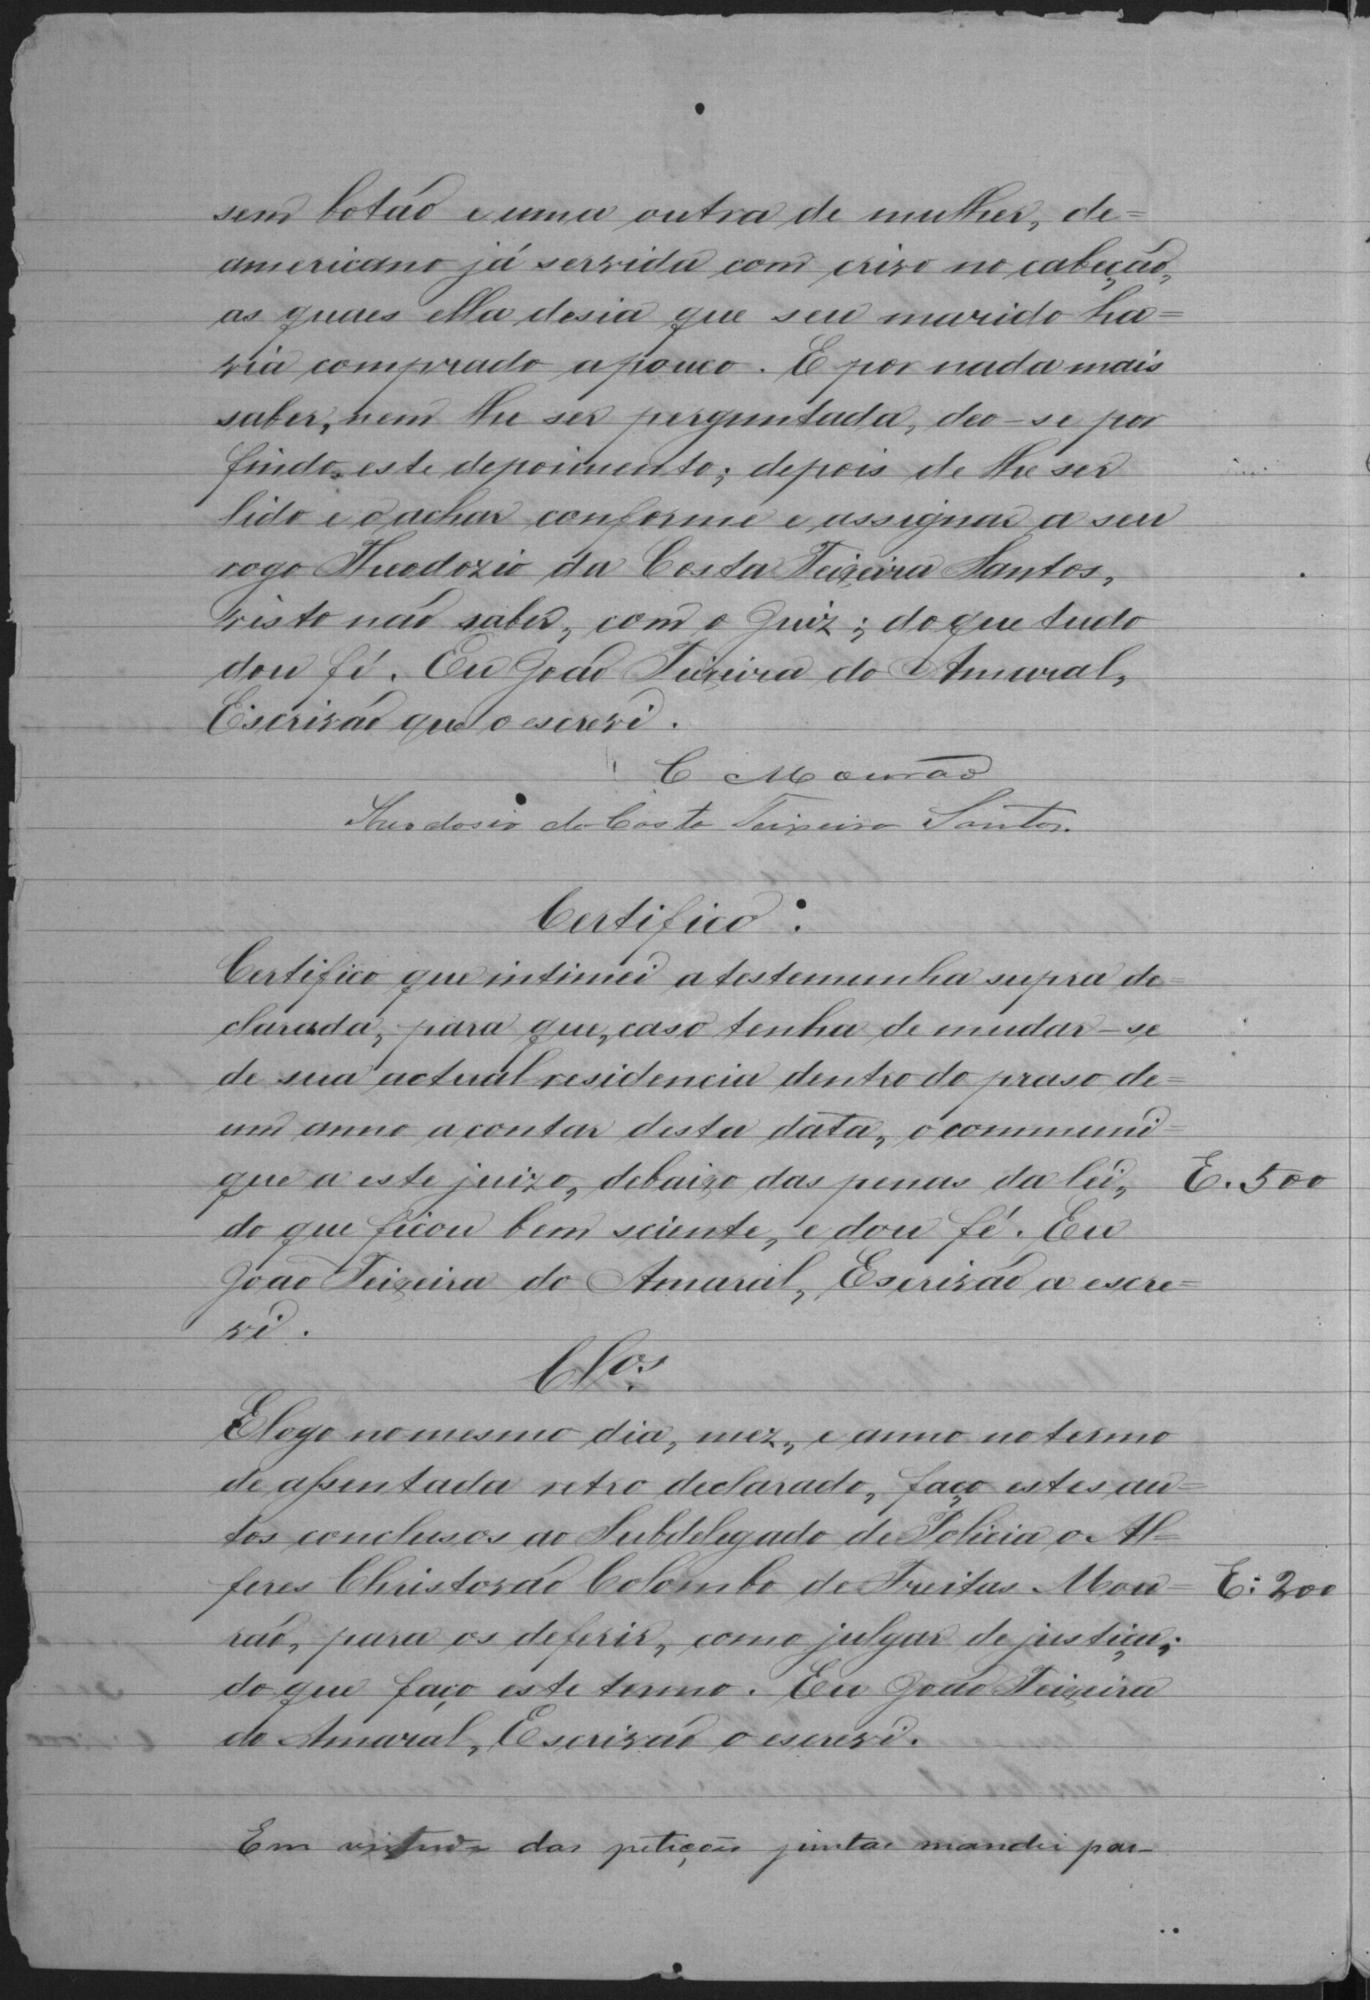 sem botão e uma outra de mulher, de=
americano já servida com crivo no cabeção,
as quaes ella desia que seu marido ha=
via comprado a pouco. E por nada mais
saber, nem lhe ser perguntada, deo-se por
findo este depoimento; depois de lhe ser
lido e o achar conforme e assignar a seu
rogo Theodozio da Costa Teixeira Santos,
visto não saber, com o Juiz; do que tudo
dou fé. Eu João Teixeira do Amaral,
Escrivão que o escrevi.
C Mourão
Theodosio da Costa Teixeira Santos.
Certifico:
Certifico que intimei a testemunha supra de=
clarada, para que, caso tenha de mudar-se
de sua actual residencia dentro do praso de=
um anno a contar desta data, o communi=
que a este juizo, debaixo das penas da lei, E. 500
do que ficou bem sciente, e dou fé. Eu
João Teixeira do Amaral, Escrivão a escre=
vi.
Clos
E logo no mesmo dia, mez, e anno no termo
de assentada retro declarado, faço estes au=
tos conclusos ao Subdelegado de Policia o Al=
feres Christovão Colombo de Freitas Mou= E: 200
rão, para os deferir, como julgar de justiça;
do que faço este termo. Eu João Teixeira
do Amaral, Escrivão o escrevi.
Em virtude das petições juntas mandei pas-